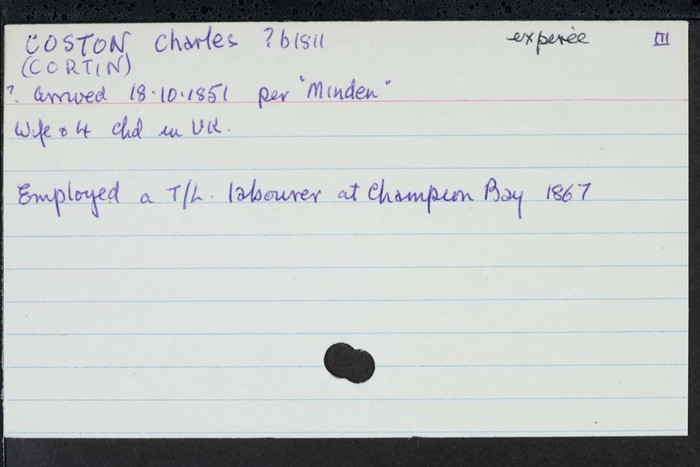 COSTON Charles ? b1811 experée III
(CORTIN)
? arrived 18.10.1851 per "Minden"
Wife & 4 chd in UK.
Employed a T/L. labourer at Champion Bay 1867